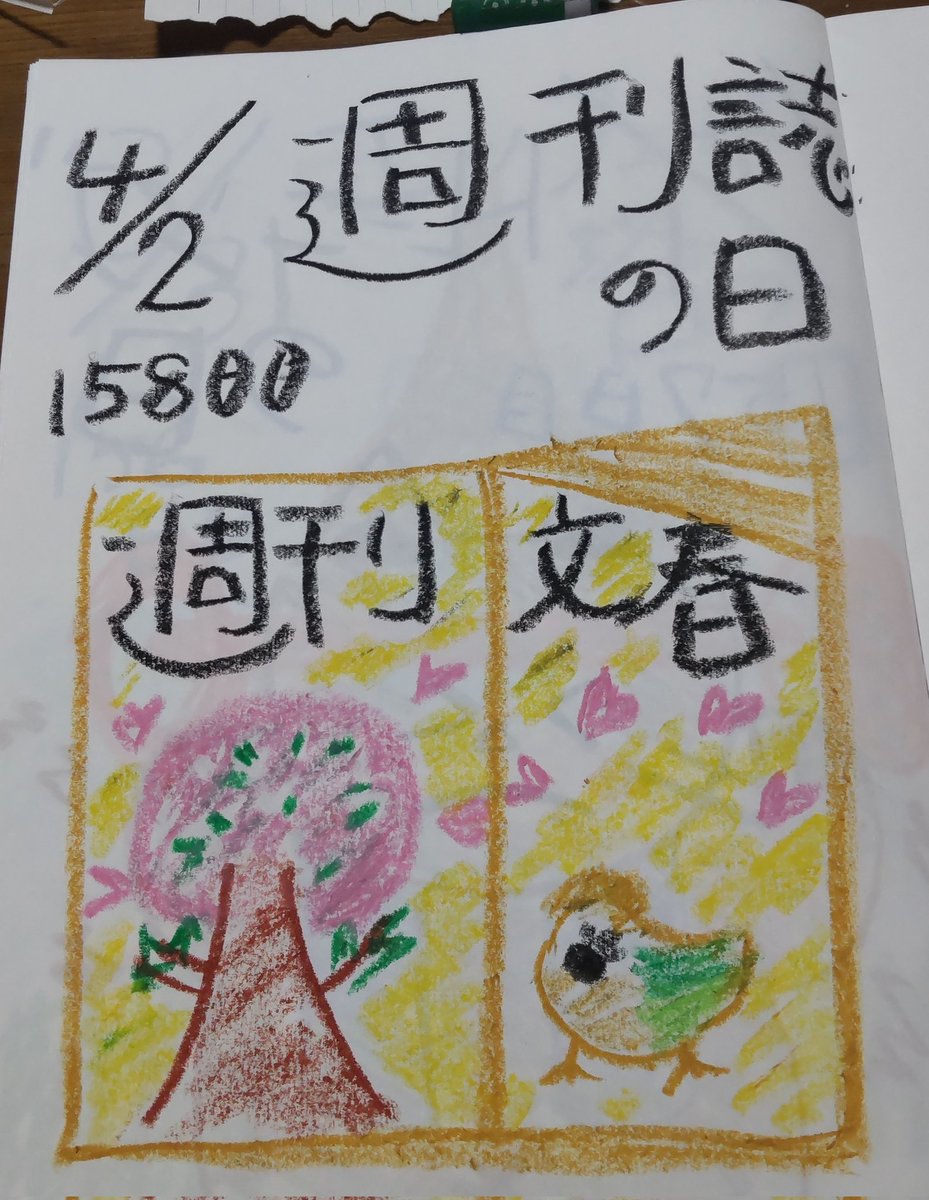 4/2 週刊誌
の日
15800
週刊文春